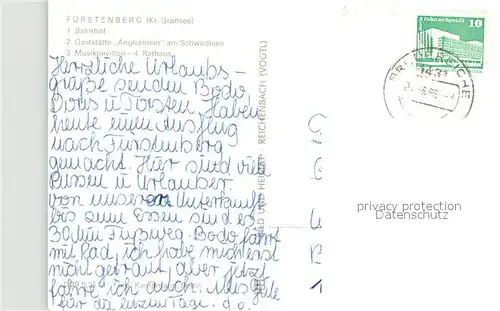 FÜRSTENBERG (Kr. Gransee)
1 Bahnhof
2 Gaststätte „Anglerheim" am Schwedtsee
3 Musikpavillon – 4 Rathaus
Herzliche Urlaubs-
grüße senden Bodo
Doris u Torsten. Haben
heute einen Ausflug
nach Fürstenberg
gemacht. Hier sind viele
Russen u Urlauber.
von unserer Unterkunft
bis zum Essen sind es
30 Min Fußweg. Bodo fährt
mit Rad, ich habe mich erst
nicht getraut, aber jetzt
fahre ich auch. Alles Gute
für die letzten Tage. d.o.
BILD UND HEIMAT · REICHENBACH (VOGTL)
10
1431
privacy protection
Datenschutz